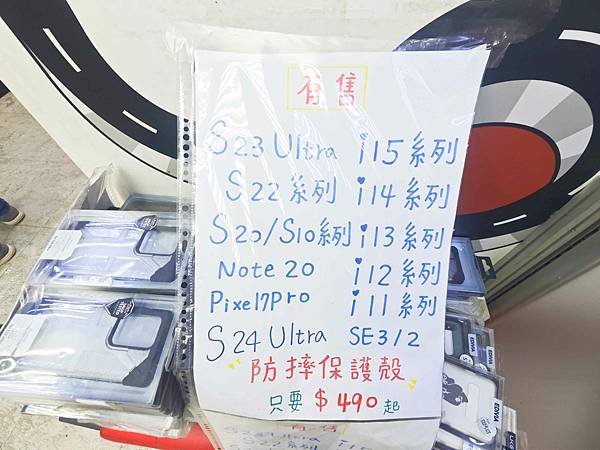 有售
S23 Ultra i15系列
S22系列 i14系列
S20/S10系列 i13系列
Note 20 i12系列
Pixel7Pro i11系列
S24 Ultra SE3/2
防摔保護殼
只要 $490起
有售